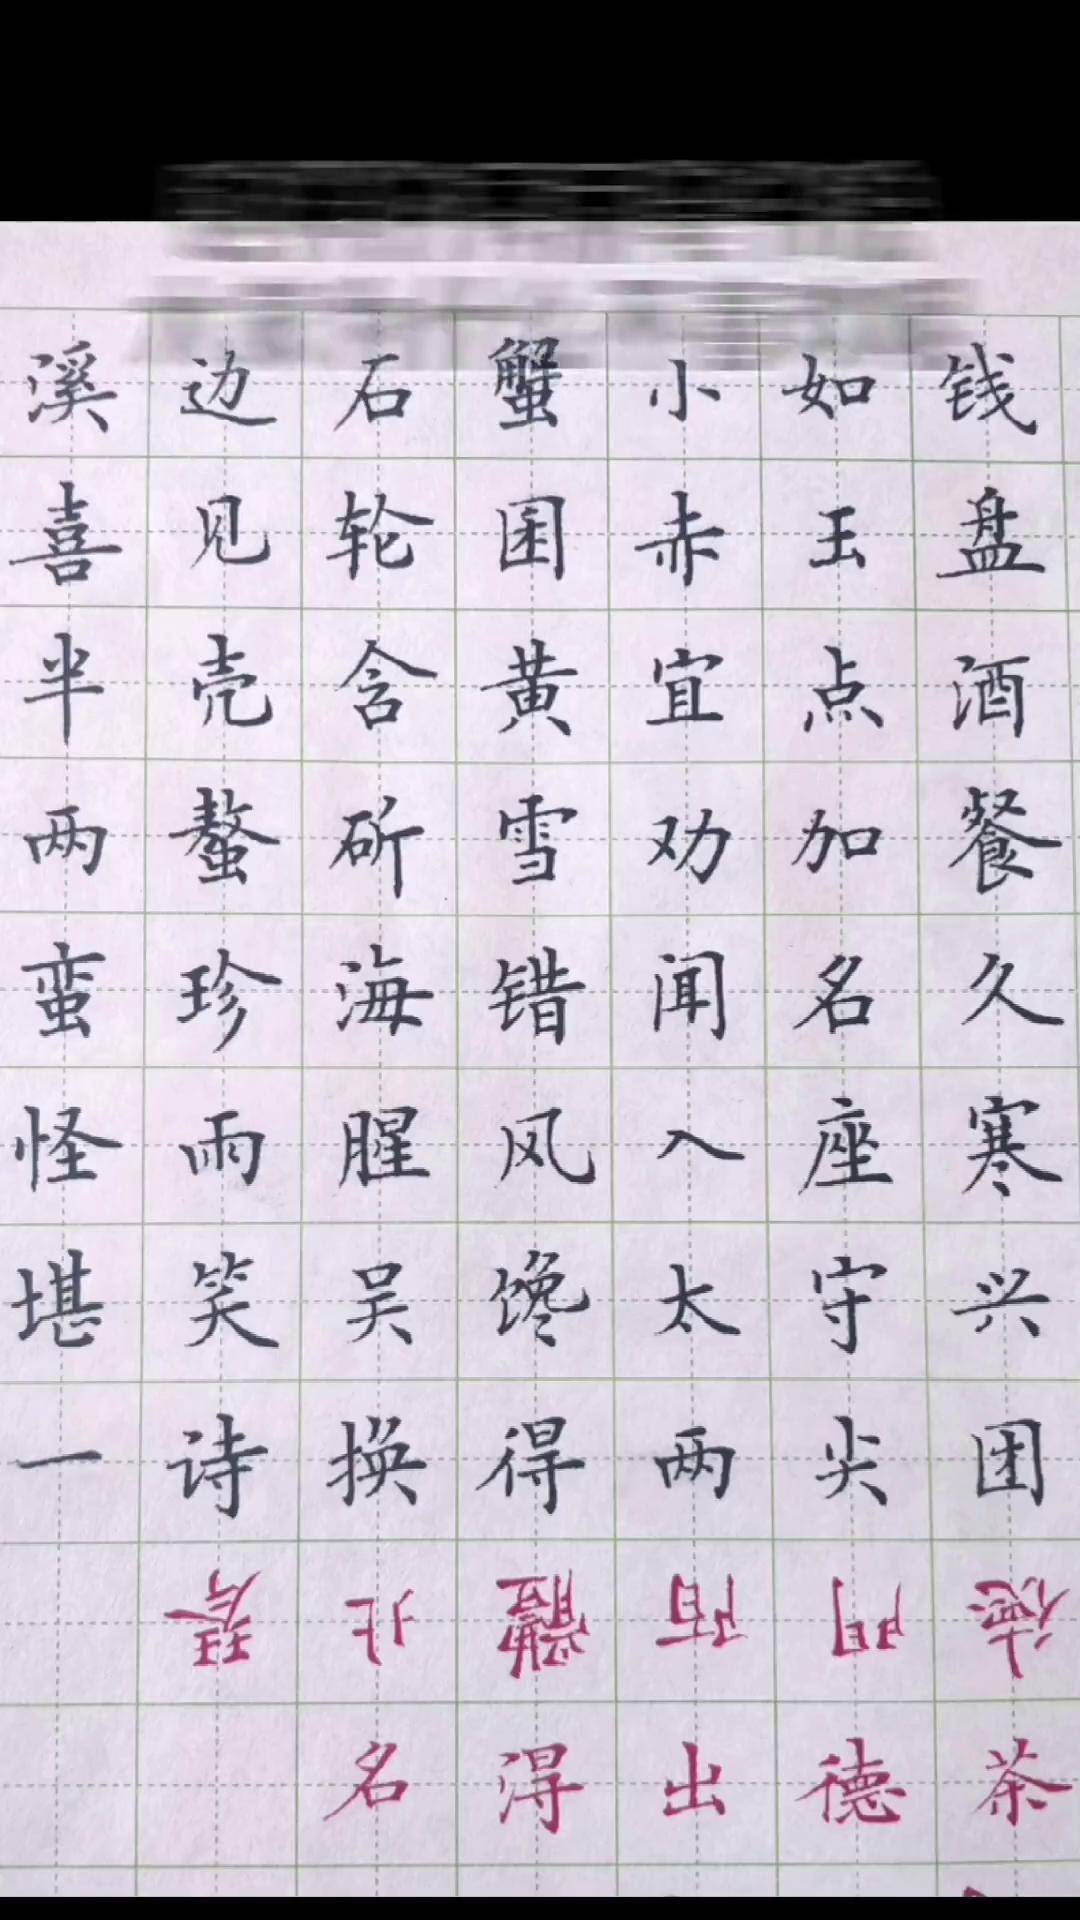 溪边石蟹小如钱
喜见轮囷赤玉盘
半壳含黄宜点酒
两螯斫雪劝加餐
蛮珍海错闻名久
怪雨腥风入座寒
堪笑吴馋太守兴
一诗换得两尖团
名淂出德茶